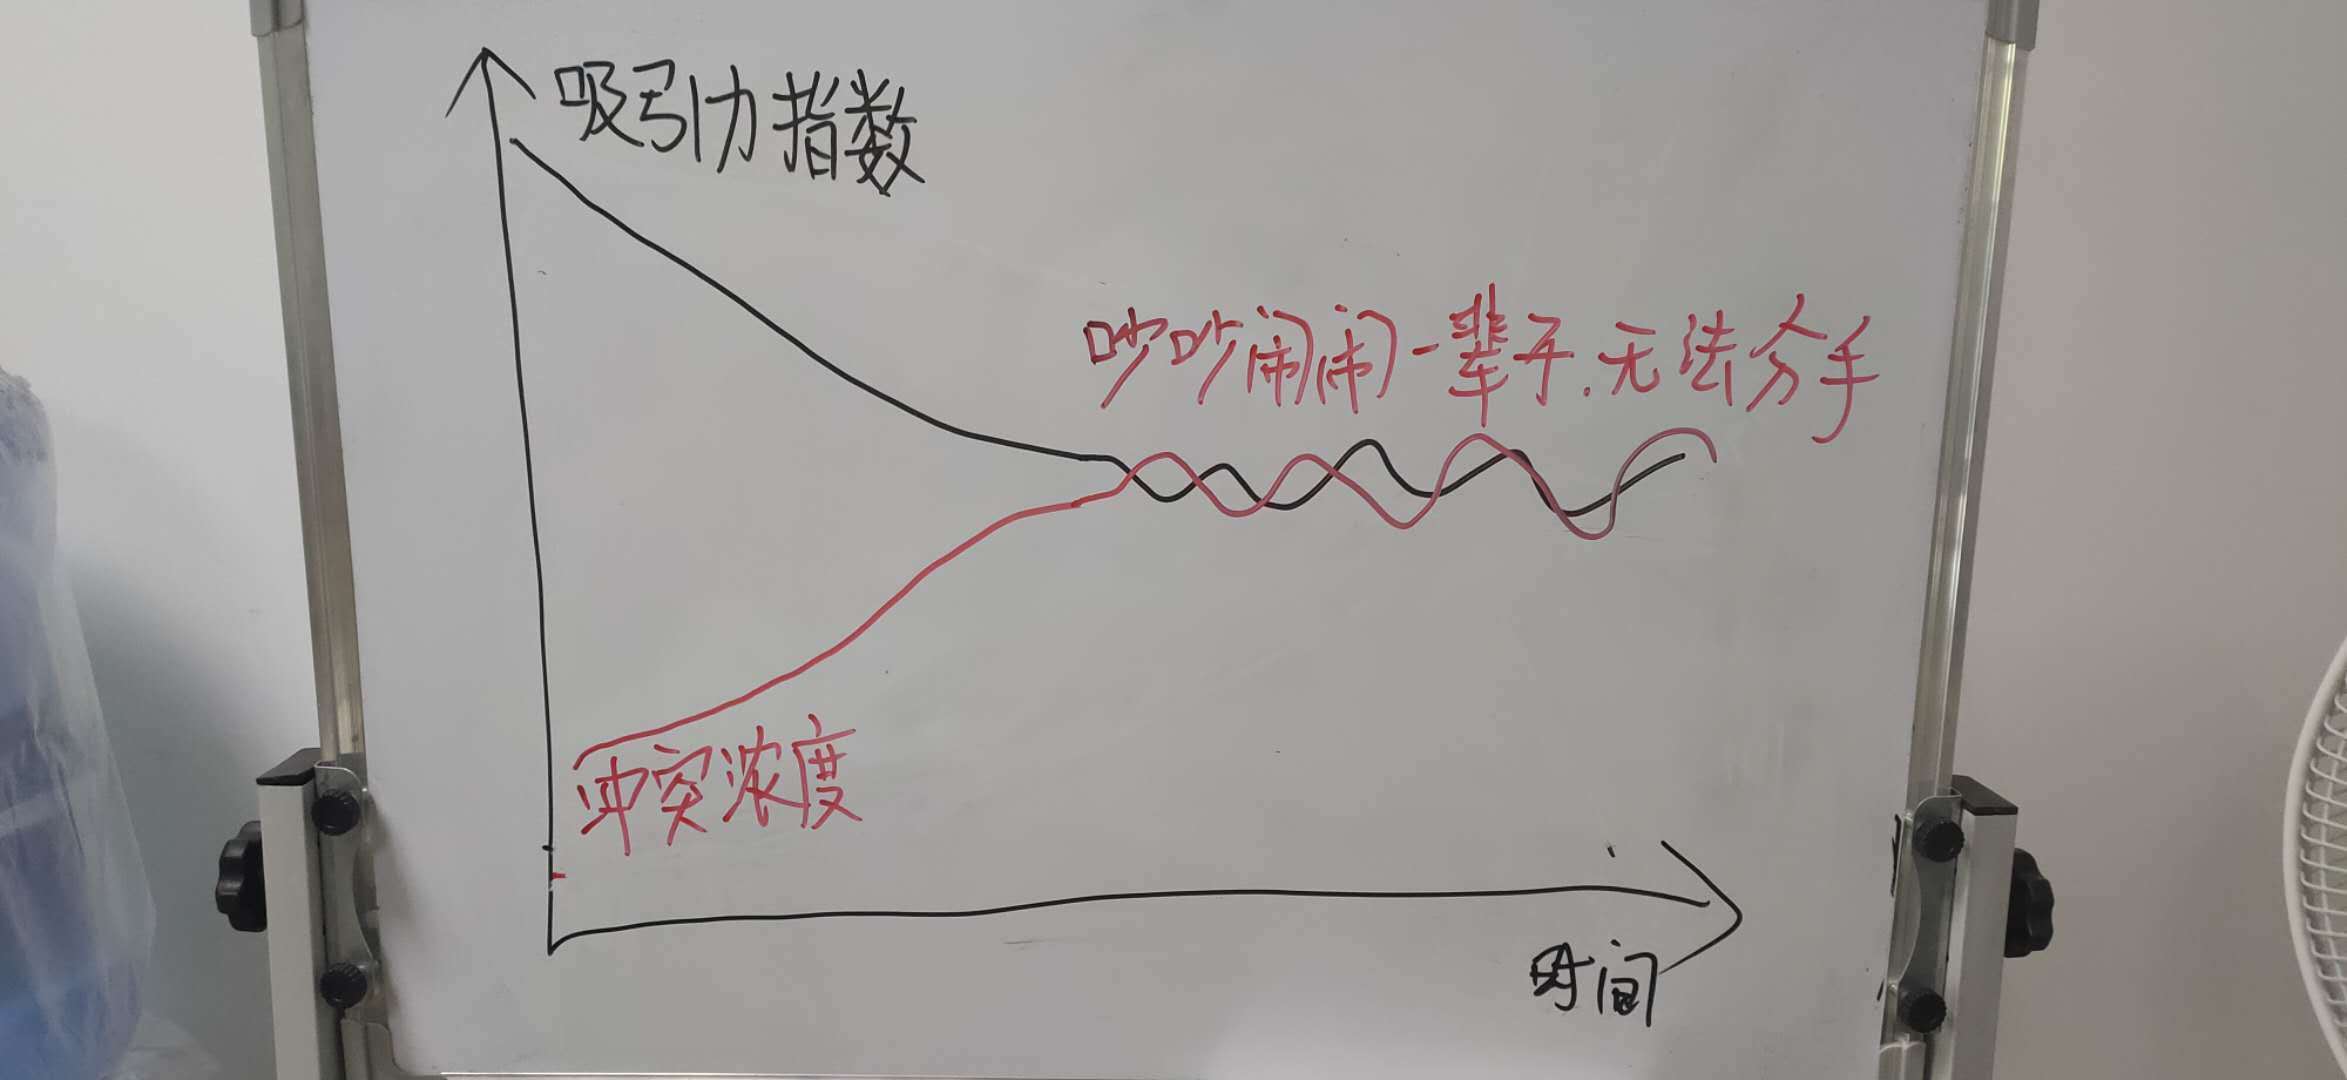 吸引力指数
吵吵闹闹一辈子.无法分手
冲突浓度
时间